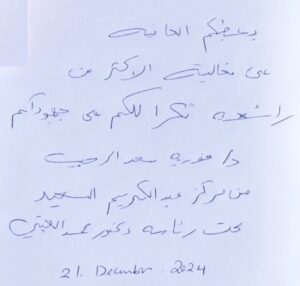 يعطيكم العافيه
على فعالية الاكثر من
رائعه شكرا لكم على جهودكم
د/ فوزيه سعد
من مركز عبدالكريم السعيد
تحت رئاسه دكتور محمد
21. December. 2024